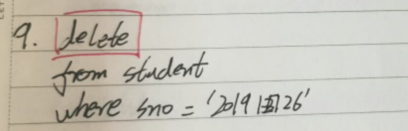 9. delete
from student
where sno = '2019126'